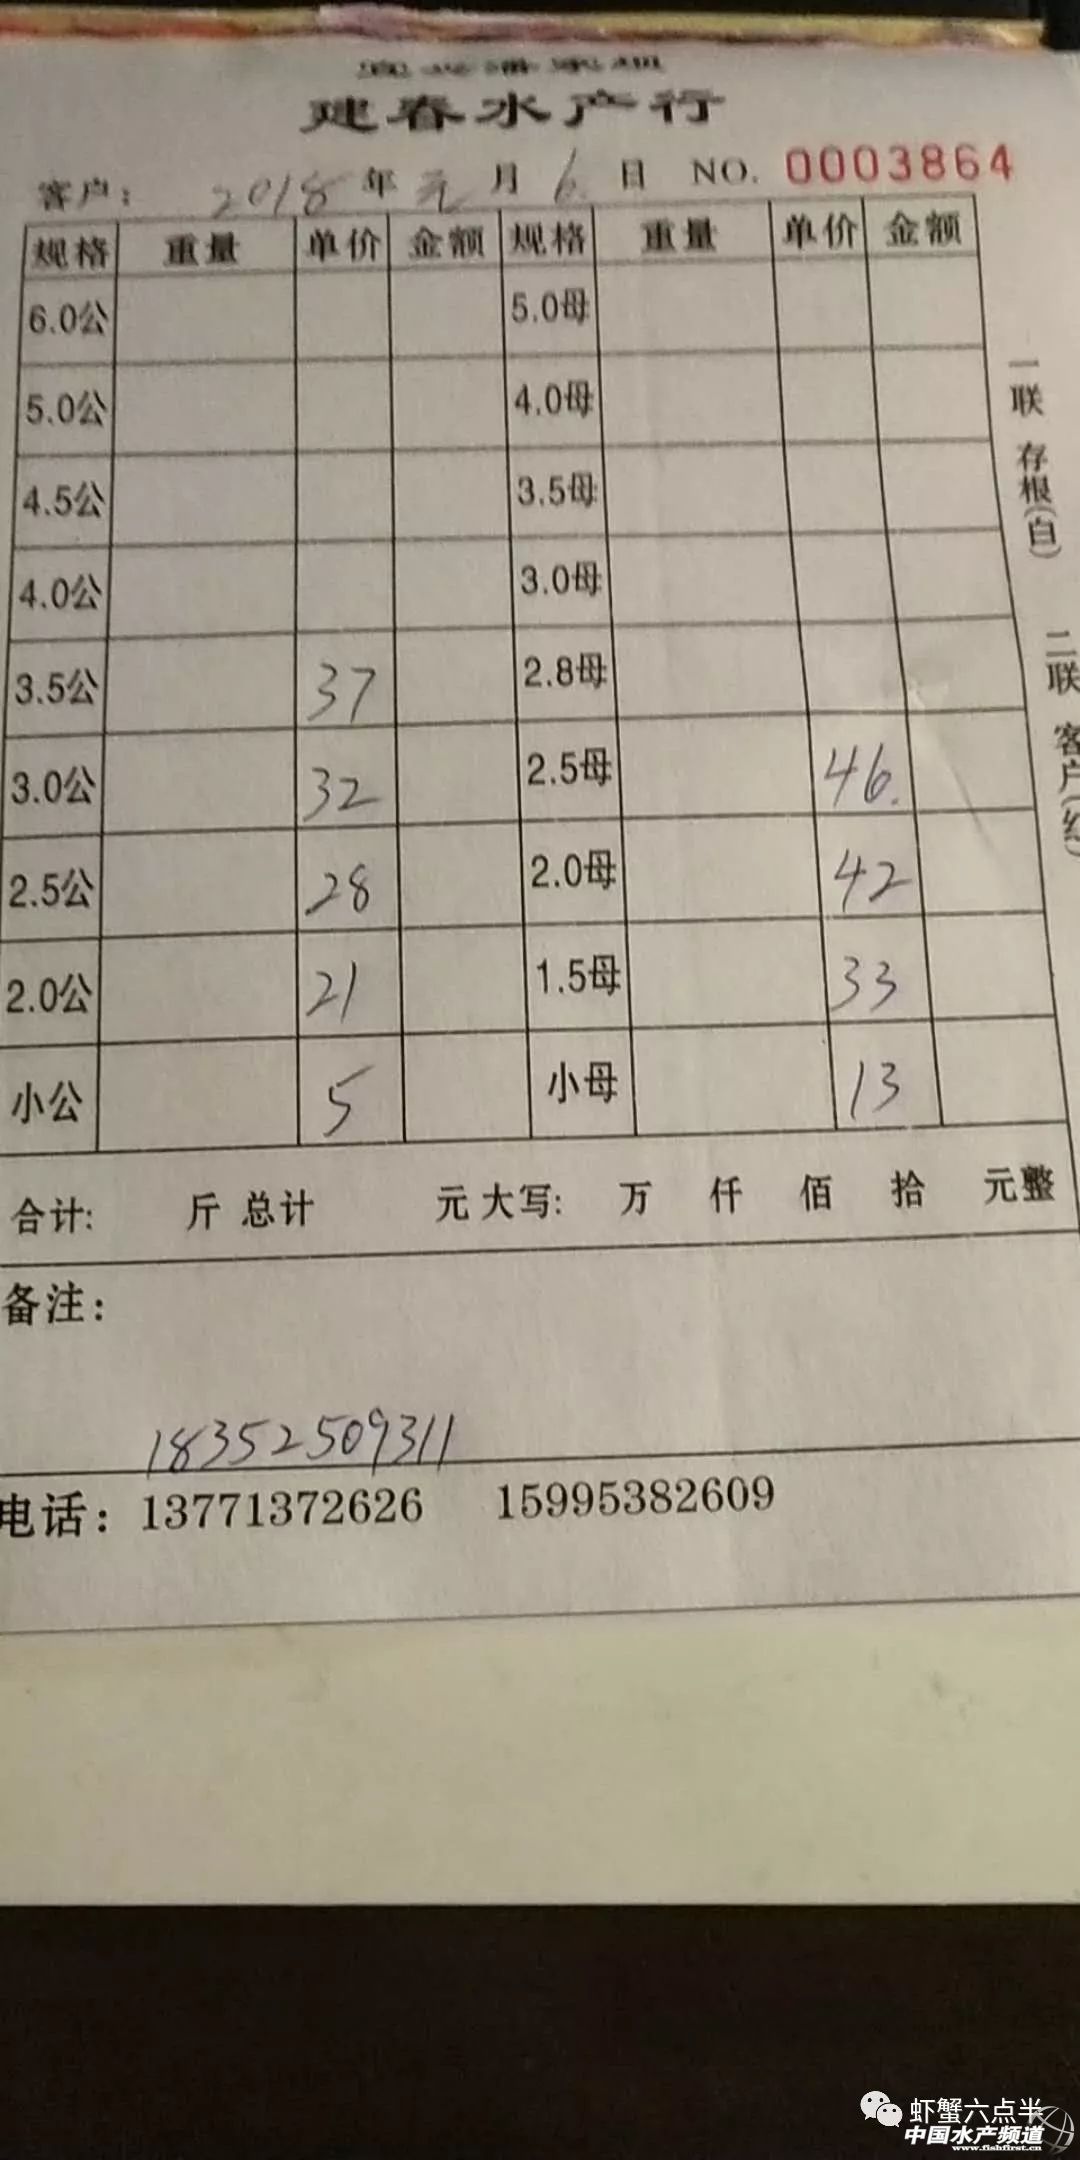 建春水产行
客户: 2018年元月6.日 NO. 0003864
规格 重量 单价 金额 规格 重量 单价 金额
6.0公 5.0母
5.0公 4.0母
4.5公 3.5母
4.0公 3.0母
3.5公 37 2.8母
3.0公 32 2.5母 46.
2.5公 28 2.0母 42
2.0公 21 1.5母 33
小公 5 小母 13
一联 存根(白) 二联 客户(红)
合计: 斤 总计 元 大写: 万 仟 佰 拾 元整
备注:
18352509311
电话: 13771372626 15995382609
虾蟹六点半
中国水产频道
www.fishfirst.cn